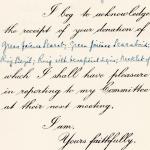 I beg to acknowledge
the receipt of your donation of
Green faience Scarab; Green faience Scaraboid;
Ring Bezel; Ring with
which I shall have pleasure
in reporting to my Committee
at their next meeting.
I am,
Yours faithfully,